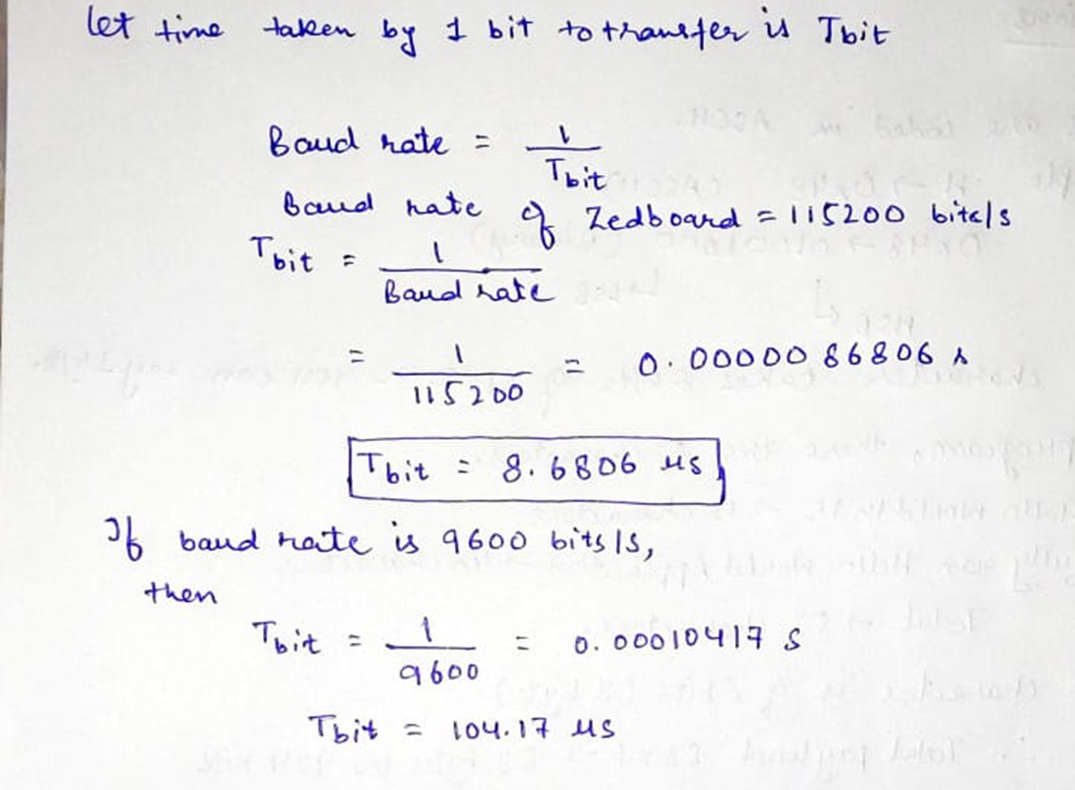 let time taken by 1 bit to transfer is Tbit
Baud rate = 1/Tbit
Baud rate of Zedboard = 115200 bits/s
Tbit = 1/Baud rate
= 1/115200 = 0.0000086806 s
Tbit = 8.6806 μs
If baud rate is 9600 bits/s,
then
Tbit = 1/9600 = 0.00010417 s
Tbit = 104.17 μs